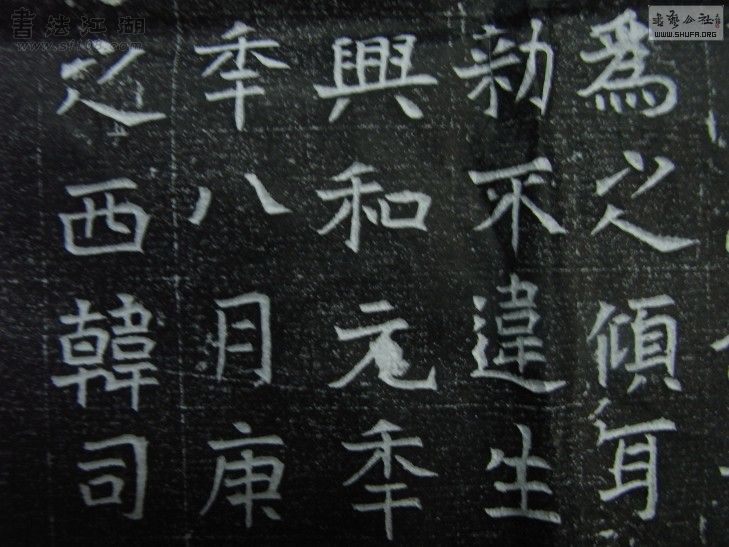 爲之傾耳
勑不違生
興和元秊
秊八月庚
之西韓司
書法江湖
www.sf108.com
書藝公社
WWW.SHUFA.ORG